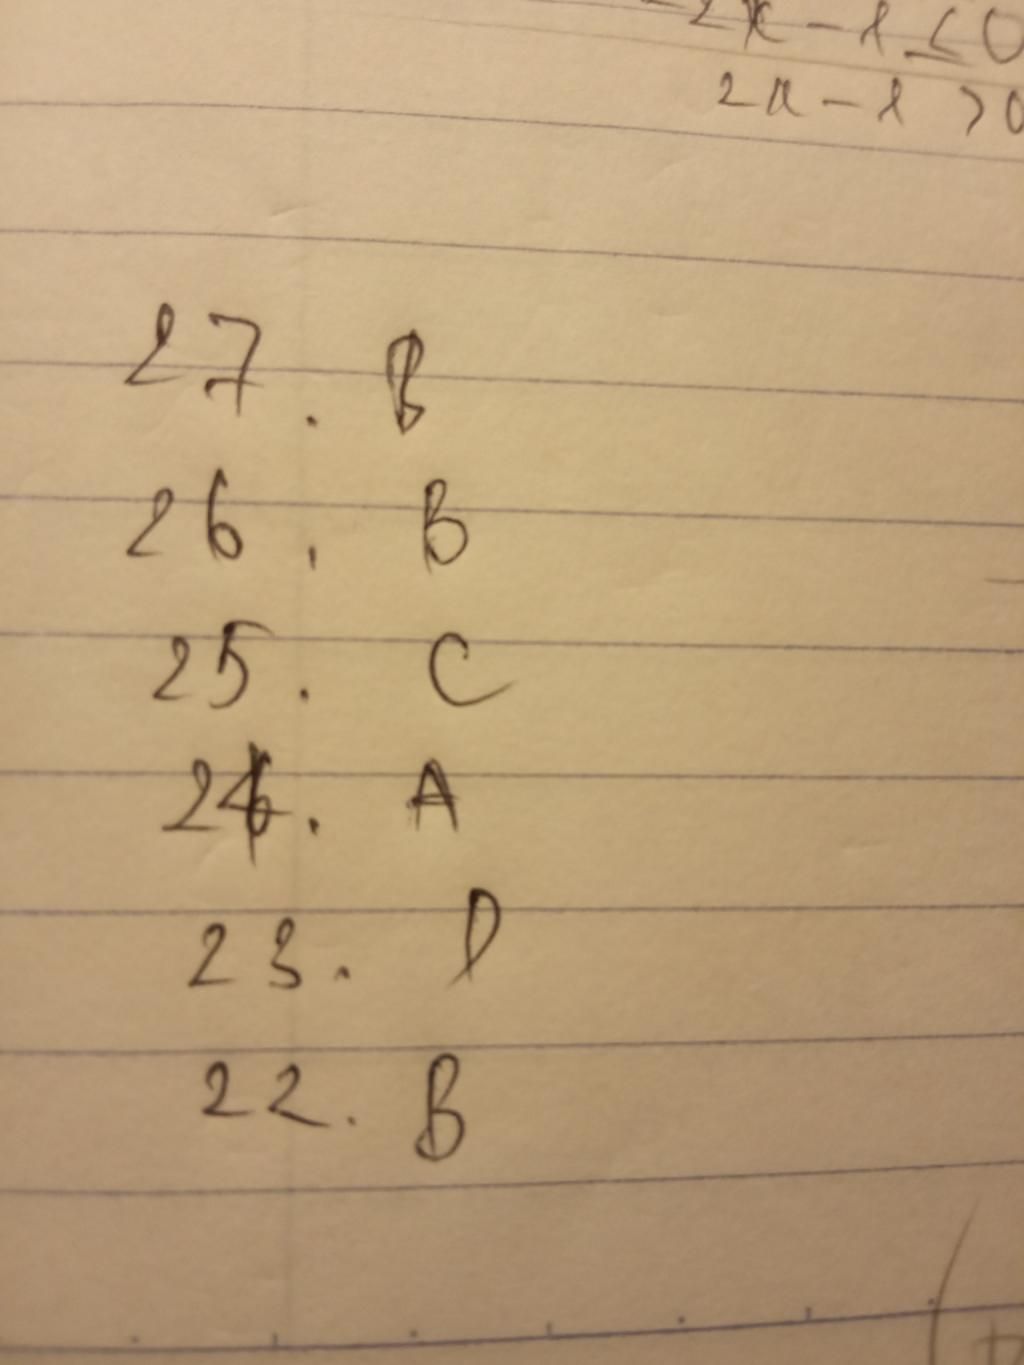 2x - 1 ≤ 0
2x - 1 > 0
27. B
26. B
25. C
24. A
23. D
22. B